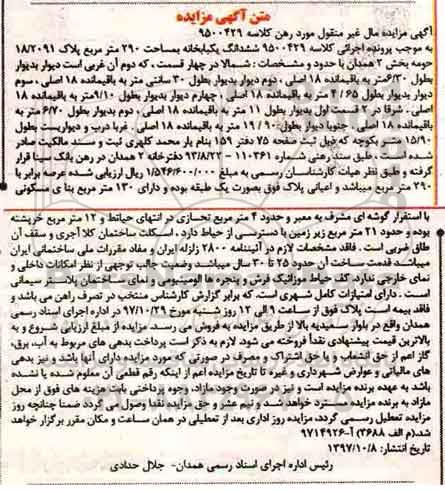 متن آگهی مزایده
آگهی مزایده مال غیر منقول مورد رهن کلاسه ۹۵۰۰۴۲۹
به موجب پرونده اجرائی کلاسه ۹۵۰۰۴۲۹ ششدانگ یکبابخانه بمساحت ۲۹۰ متر مربع پلاک ۱۸/۲۰۹۱
حومه بخش ۲ همدان با حدود و مشخصات : شمالا در چهار قسمت ، که دوم آن غربی است دیوار بدیوار
بطول ۶/۳۰ متر به باقیمانده ۱۸ اصلی ، دوم دیوار بدیوار بطول ۳۰ سانتی متر به باقیمانده ۱۸ اصلی ، سوم
دیوار بدیوار بطول ۶۵ / ۴ متر به باقیمانده ۱۸ اصلی ، چهارم دیوار بدیوار بطول ۹/۱۰ متر به باقیمانده ۱۸
اصلی . شرقا در ۲ قسمت اول بدیوار بطول ۱۱ متر به باقیمانده ۱۸ اصلی ، دوم بدیوار بطول ۶/۷۰ متر به
باقیمانده ۱۸ اصلی . جنوبا دیوار بطول ۹۰ / ۱۹ متر به باقیمانده ۱۸ اصلی . غربا درب و دیواریست بطول
۱۵/۹۰ متر بکوچه که ذیل ثبت صفحه ۷۵ دفتر ۱۵۹ بنام یار محمد کلهری ثبت و سند مالکیت صادر
شده است . طبق سند رهنی شماره ۱۱۰۳۶۱ – ۹۳/۸/۲۲ دفترخانه ۲ همدان در رهن بانک سینا قرار
گرفته و طبق نظر هیات کارشناسان رسمی به مبلغ ۱/۵۴۶/۶۰۰/۰۰۰ ریال ارزیابی شده عرصه برابر با
۲۹۰ متر مربع میباشد و اعیانی پلاک فوق بصورت یک طبقه بوده و دارای ۱۳۰ متر مربع بنا ی مسکونی
با استقرار گوشه ای مشرف به معبر و حدود ۴ متر مربع تحسازی در انتهای حیاط و ۱۲ متر مربع خرپشته
بوده و حدود ۲۱ متر مربع زیر زمین با دسترسی از حیاط دارد . اسکلت ساختمان کلا آجری و سقف آن
طاق ضربی است . فاقد مشخصات لازم در آئیننامه ۲۸۰۰ زلزله ایران و مفاد مقررات ملی ساختمانی ایران
میباشد قدمت ساخت آن حدود ۲۵ تا ۳۰ سال میباشد وضعیت جالب توجهی از نظر امکانات داخلی و
نمای خارجی ندارد. کف حیاط موزائیک فرش و پنجره ها الومینیومی و نمای ساختمان پلاستر سیمانی
است . دارای امتیازات کامل شهری است. که برابر گزارش کارشناس منتخب در تصرف راهن می باشد و
فاقد بیمه است پلاک فوق از ساعت ۹ الی ۱۲ روز شنبه مورخ ۹۷/۱۰/۲۹ در اداره اجرای اسناد رسمی
همدان واقع در بلوار سعیدیه بالا از طریق مزایده به فروش می رسد. مزایده از مبلغ ارزیابی شروع و به
بالاترین قیمت پیشنهادی نقداً فروخته می شود. لازم به ذکر است پرداخت بدهی های مربوط به آب، برق،
گاز اعم از حق انشعاب و یا حق اشتراک و مصرف در صورتی که مورد مزایده دارای آنها باشد و نیز بدهی
های مالیاتی و عوارض شهرداری و غیره تا تاریخ مزایده اعم از اینکه رقم قطعی آن معلوم شده یا نشده
باشد به عهده برنده مزایده است و نیز در صورت وجود مازاد، وجوه پرداختی بابت هزینه های فوق از محل
مازاد به برنده مزایده مسترد خواهد شد و نیم عشر و حق مزایده نقدا وصول می گردد ضمنا چنانچه روز
مزایده تعطیل رسمی گردد، مزایده روز اداری بعد از تعطیلی در همان ساعت و مکان مقرر برگزار خواهد
شد.(م الف ۳۶۸۸) آ-۹۷۱۴۹۲۶
تاریخ انتشار: ۱۳۹۷/۱۰/۸
رئیس اداره اجرای اسناد رسمی همدان- جلال حدادی